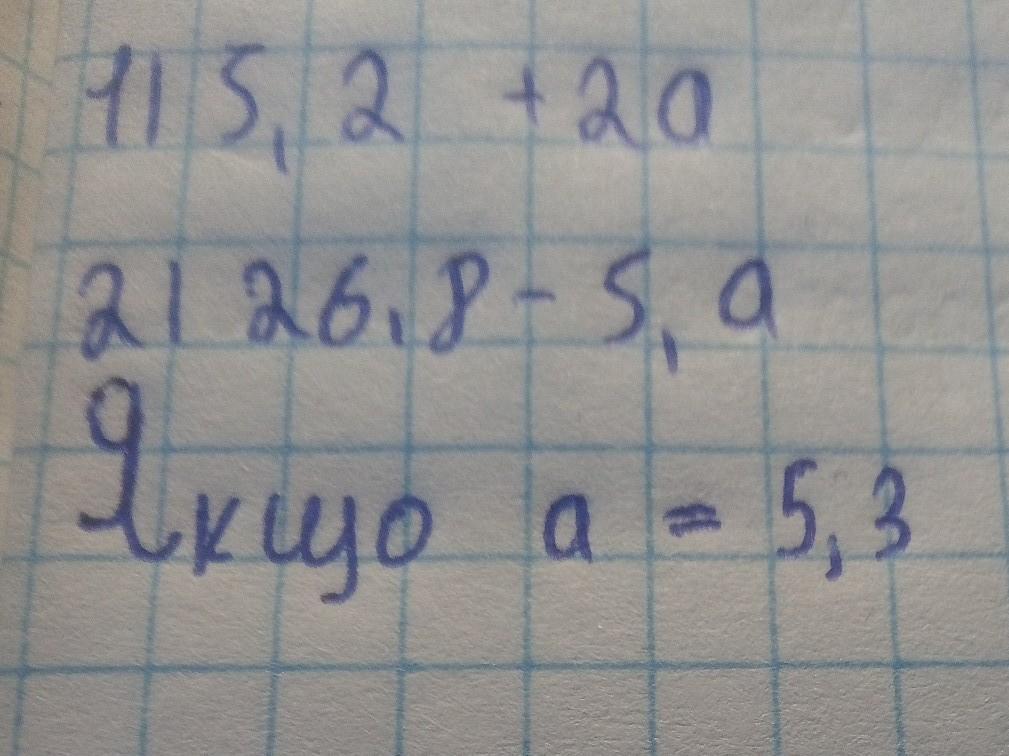 1) 5,2 + 2a
2) 26,8 - 5,a
Якщо a = 5,3